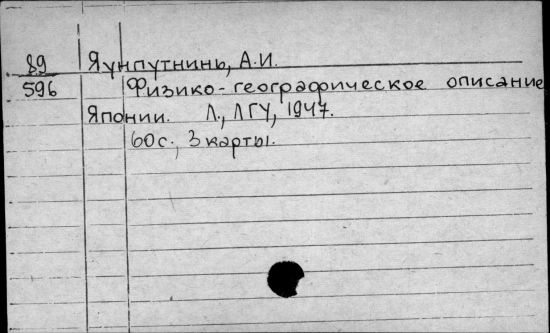 89 Яунпутнинь, А.И.
596 Физико-географическое описание
Японии. Л., ЛГУ, 1947.
60с.; 3 карты.